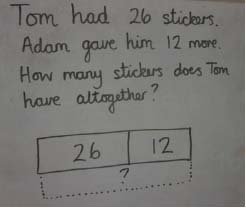 Tom had 26 stickers.
Adam gave him 12 more.
How many stickers does Tom
have altogether?
26 12
?